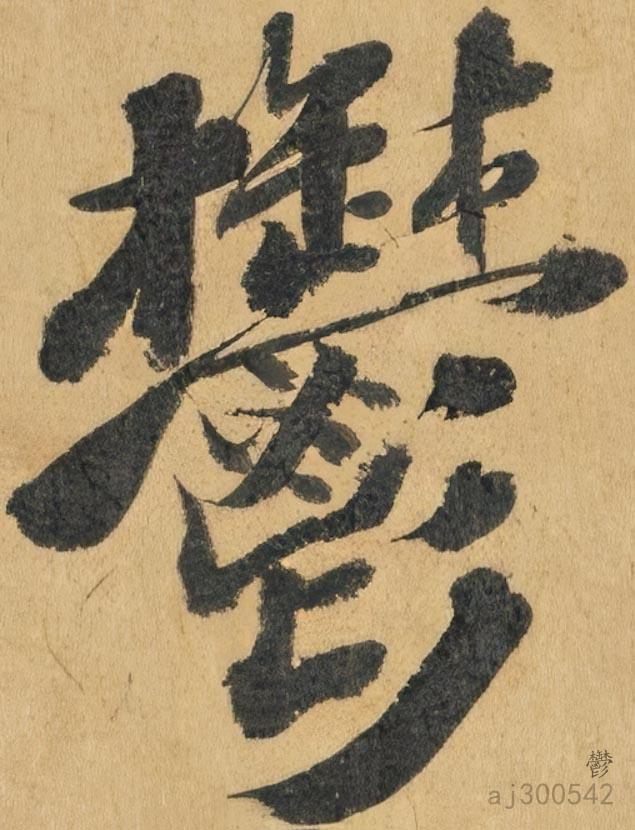 鬱
鬱
aj300542